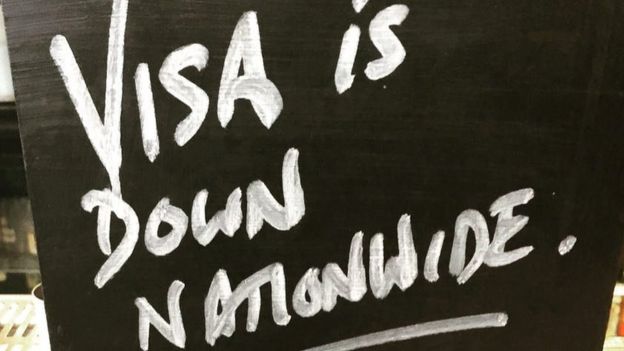 VISA is
DOWN
NATIONWIDE.